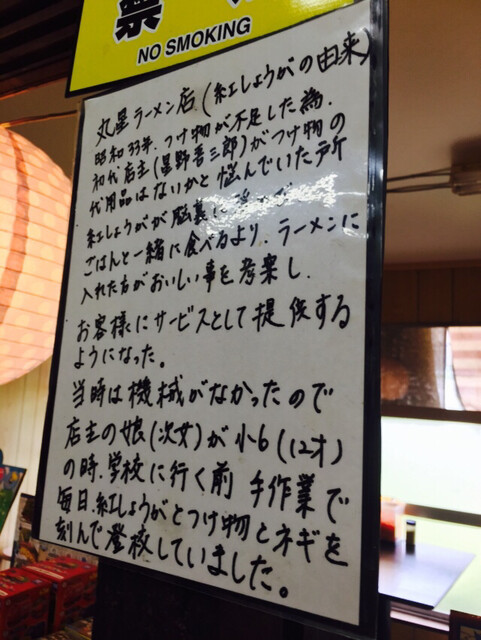 禁
NO SMOKING
丸星ラーメン店(紅しょうがの由来)
昭和33年、つけ物が不足した為、
初代店主(星野吾三郎)がつけ物の
代用品はないかと悩んでいた所
紅しょうがが脳裏に
ごはんと一緒に食べるより、ラーメンに
入れた方がおいしい事を考案し、
お客様にサービスとして提供する
ようになった。
当時は機械がなかったので
店主の娘(次女)が小6(12才)
の時、学校に行く前 手作業で
毎日、紅しょうがとつけ物とネギを
刻んで登校していました。